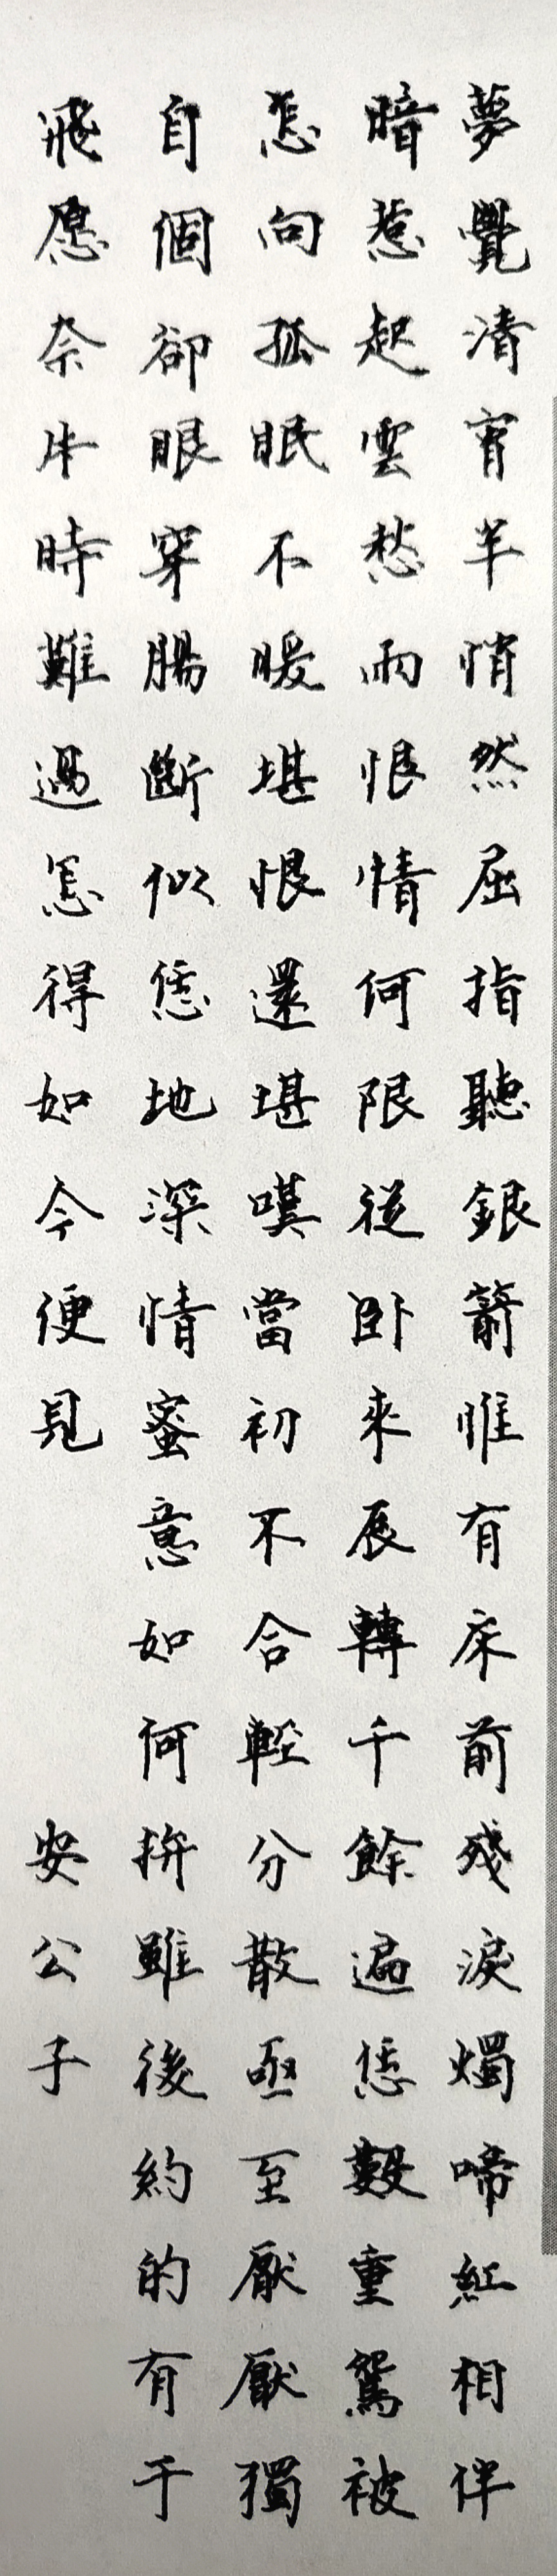 夢覺清宵半悄然屈指聽銀箭惟有床前殘淚燭啼紅相伴
暗惹起雲愁雨恨情何限從卧來展轉千餘遍恁數重鴛被
怎向孤眠不暖堪恨還堪嘆當初不合輕分散亟至厭厭獨
自個卻眼穿腸斷似恁地深情蜜意如何拚雖後約的有于
飛愿奈片時難過怎得如今便見
安公子